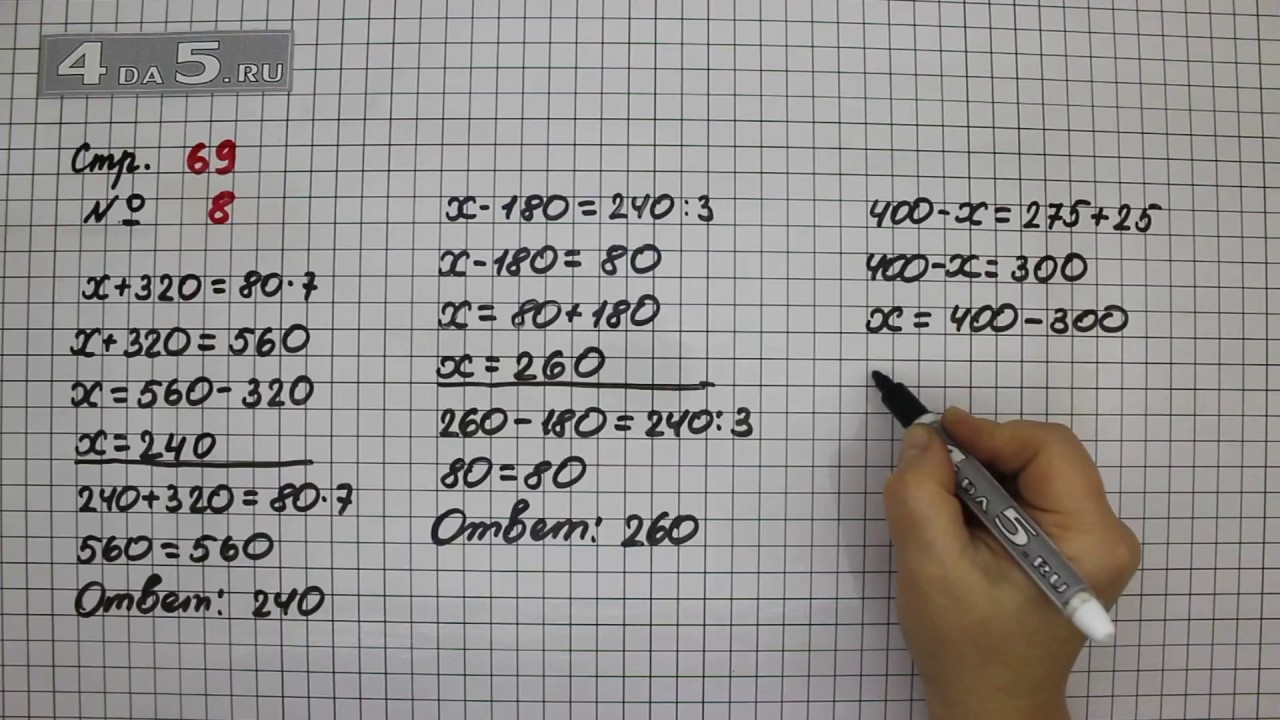 4DA5.RU
Стр. 69
№ 8
х+320=80·7
х+320=560
х=560-320
х=240
240+320=80·7
560=560
Ответ: 240
х-180=240:3
х-180=80
х=80+180
х=260
260-180=240:3
80=80
Ответ: 260
400-х=275+25
400-х=300
х=400-300
4DA5.RU